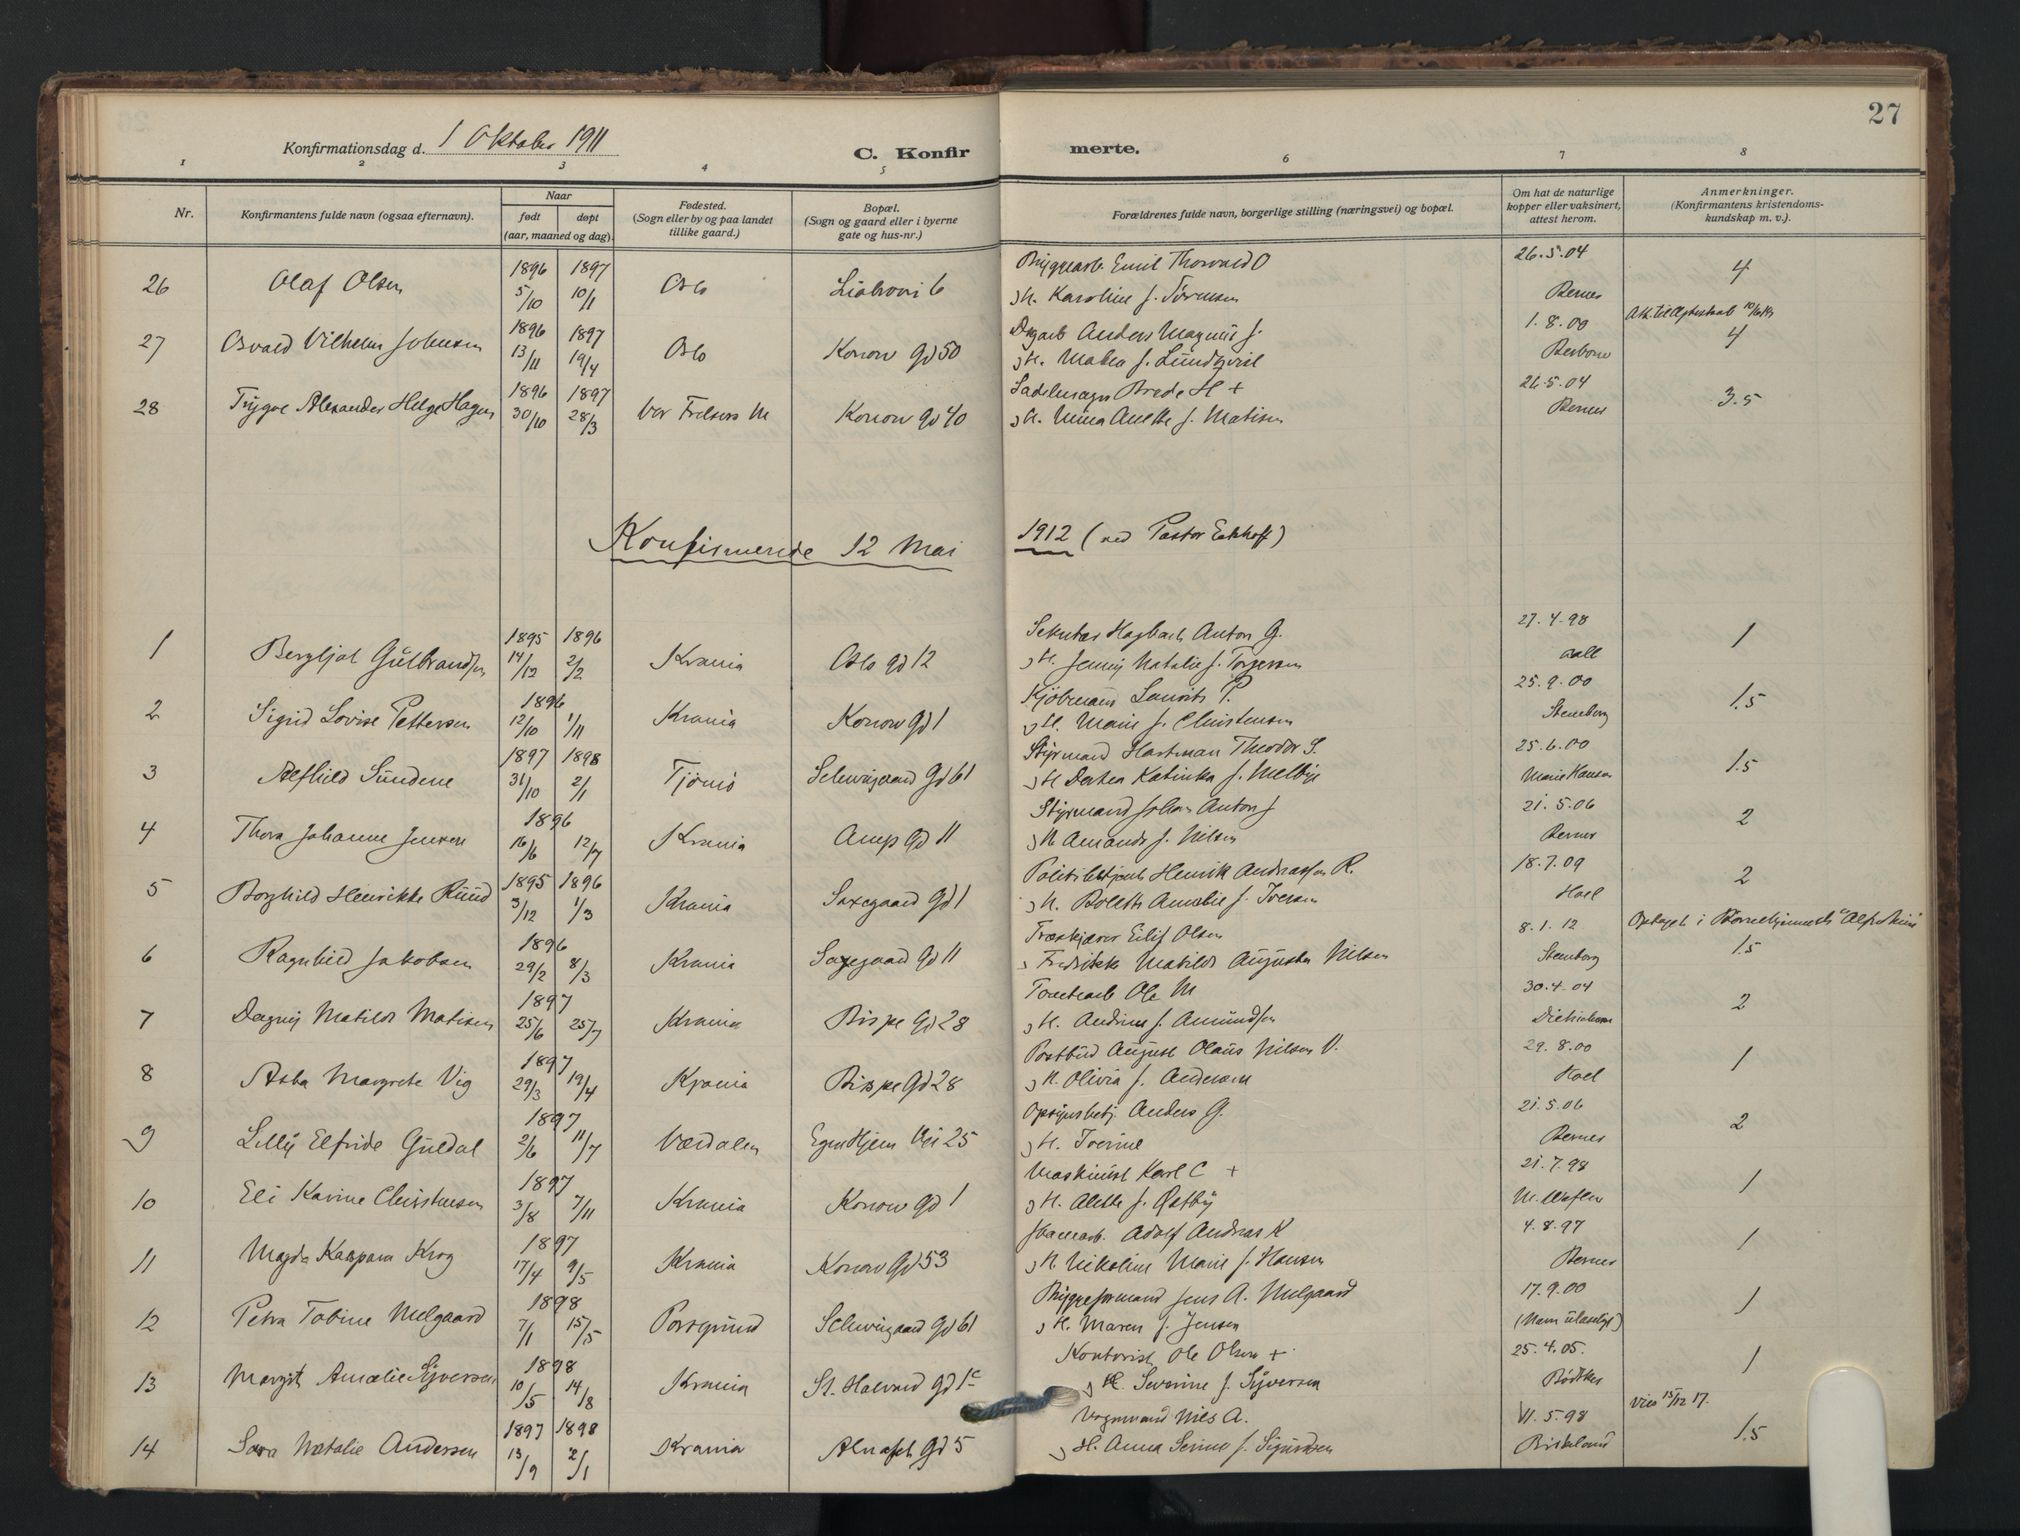 27
Konfirmationsdag d. 1 Oktober 1911
C. Konfirmerte.
1 2 3 4 5 6 7 8
Nr.
Konfirmantens fulde navn (ogsaa efternavn).
Naar
født døpt
(aar, maaned og dag).
Fødested.
(Sogn eller by og paa landet
tillike gaard.)
Bopæl.
(Sogn og gaard eller i byerne
gate og hus-nr.)
Forældrenes fulde navn, borgerlige stilling (næringsvei) og bopæl.
Om hat de naturlige
kopper eller vaksinert,
attest herom.
Anmerkninger.
(Konfirmantens kristendoms-
kundskap m. v.).
26 Olaf Olsen 1896 5/10 1897 10/1 Oslo 6 Emil Thorvald O 26.5.04 4
& H. Karoline f. Berner
27 Osvald Vilhelm Johnsen 1896 13/11 1897 19/4 Oslo Konow Gd 50 Anders Magnus J. 1.8.00 4
& H. f. Lundqvist
28 Trygve Alexander Helge Hagen 1896 30/10 1897 28/3 Vor Frelsers M Konow gd 40 Brede H + 26.5.04 3.5
& H. Mina Anette f. Matisen Berner
Konfirmerede 12 Mai 1912 (ved Pastor Eckhoff)
1 Bergljot Gulbrandsen 1895 14/12 1896 2/2 Krania Oslo gd 12 Hagbarth Anton G. 27.4.98 1
& H. Jenny Natalie f. Torgersen Aall
2 Sigrid Lovise Pettersen 1896 12/10 1/11 Krania Konow Gd 1 Kjøbmand Laurits P. 25.9.00 1.5
& H. Marie f. Christensen Steenberg
3 Alfhild Sundene 1897 31/10 1898 2/1 Tjømø Schweigaard Gd 61 Styrmand Hartman Theodor S. 25.6.00 1.5
& H Dorthea Katinka f. Melbye Marie Hansen
4 Thora Johanne Jensen 1896 16/6 12/7 Krania Gd 11 Styrmand Johan Anton J 21.5.06 2
& H Amanda f. Nilsen Berner
5 Borghild Henrikke Ruud 1895 3/12 1896 1/3 Krania Saxegaard Gd 1 Politibetjent Henrik Andreassen R. 18.7.09 2
& H. Bolette Amalie f. Iversen Hoel
6 Ragnhild Jakobsen 1896 29/2 8/3 Krania Saxegaard Gd 11 Træskjærer Eilif Olsen 8.1.12 Optaget i 1.5
& Fredrikke Matilde Augusta Nilsen Steenberg
7 Dagny Matilde Matisen 1897 25/6 25/7 Krania Bispe Gd 28 Ole M 30.4.04 2
& H. Andrine f. Amundsen
8 Asta Margrete Vig 1897 29/3 19/4 Krania Bispe Gd 28 Postbud August Olaus Nilsen V. 29.8.00 1
& H. Olivia f. Andersen Hoel
9 Lilly Elfride Guldal 1897 2/6 11/7 Værdalen Egne Hjem Vei 25 Opsynsbetj. Anders G. 21.5.06 2
& H. Iverine Berner
10 Eli Karine Christensen 1897 3/8 7/11 Krania Konow gd 1 Maskinist Karl C + 21.7.98 1
& H. Alette f. Østby
11 Magda Kaspara Krog 1897 17/4 9/5 Krania Konow Gd 53 Adolf Andreas K 4.8.97 1
& H. Nikoline Marie f. Hansen Berner
12 Petra Tobine Melgaard 1898 7/1 15/5 Porsgrund Schweigaard Gd 61 Bryggeformand Jens A. Melgaard 17.9.00 1
& H. Maren f. Jensen (Navn ulæseligt)
13 Margit Amalie Syversen 1898 10/5 14/8 Krania St. Halvard Gd 1c Kontorist Ole Olsen + 25.4.05. 1
& H. Severine f. Syversen Bødtker
14 Sara Natalie Andersen 1897 13/9 1898 2/1 Krania Gd 5 Vognmand Nils A. 11.5.98 Viet 15/12 17. 1.5
& H. Anna Serine f. Sigurdsen Birkeland